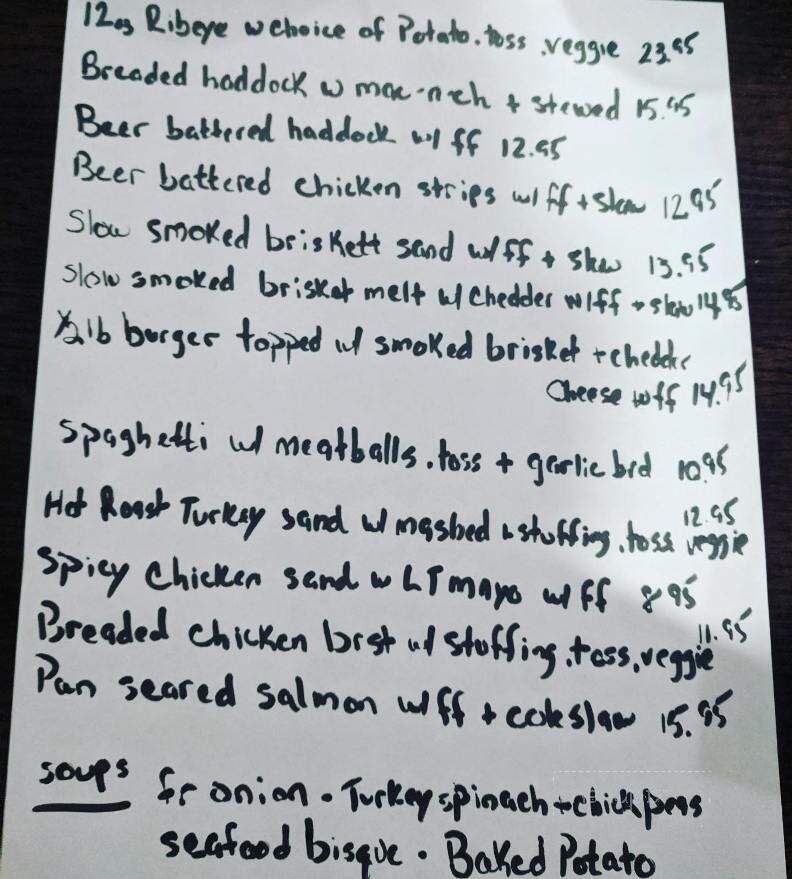 12oz Ribeye w choice of Potato. toss. veggie 23.95
Breaded haddock w mac-n-ch + stewed 15.95
Beer battered haddock w/ ff 12.95
Beer battered chicken strips w/ ff + slaw 12.95
Slow smoked briskett sand w/ff + slaw 13.95
Slow smoked brisket melt w/ Chedder w/ff + slaw 14.95
1/2 lb burger topped w/ smoked brisket + chedder
Cheese w ff 14.95
Spaghetti w/ meatballs. toss + garlic brd 10.95
12.95
Hot Roast Turkey sand w/ mashed + stuffing. toss veggie
Spicy Chicken sand w LT mayo w/ ff 8.95
11.95
Breaded chicken brst w/ stuffing. toss. veggie
Pan seared salmon w/ff + coleslaw 15.95
soups fr onion . Turkey spinach + chick peas
seafood bisque . Baked Potato